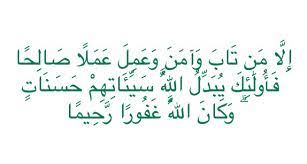 إِلَّا مَن تَابَ وَآمَنَ وَعَمِلَ عَمَلًا صَالِحًا
فَأُولَٰئِكَ يُبَدِّلُ اللَّهُ سَيِّئَاتِهِمْ حَسَنَاتٍ
ۗ وَكَانَ اللَّهُ غَفُورًا رَّحِيمًا